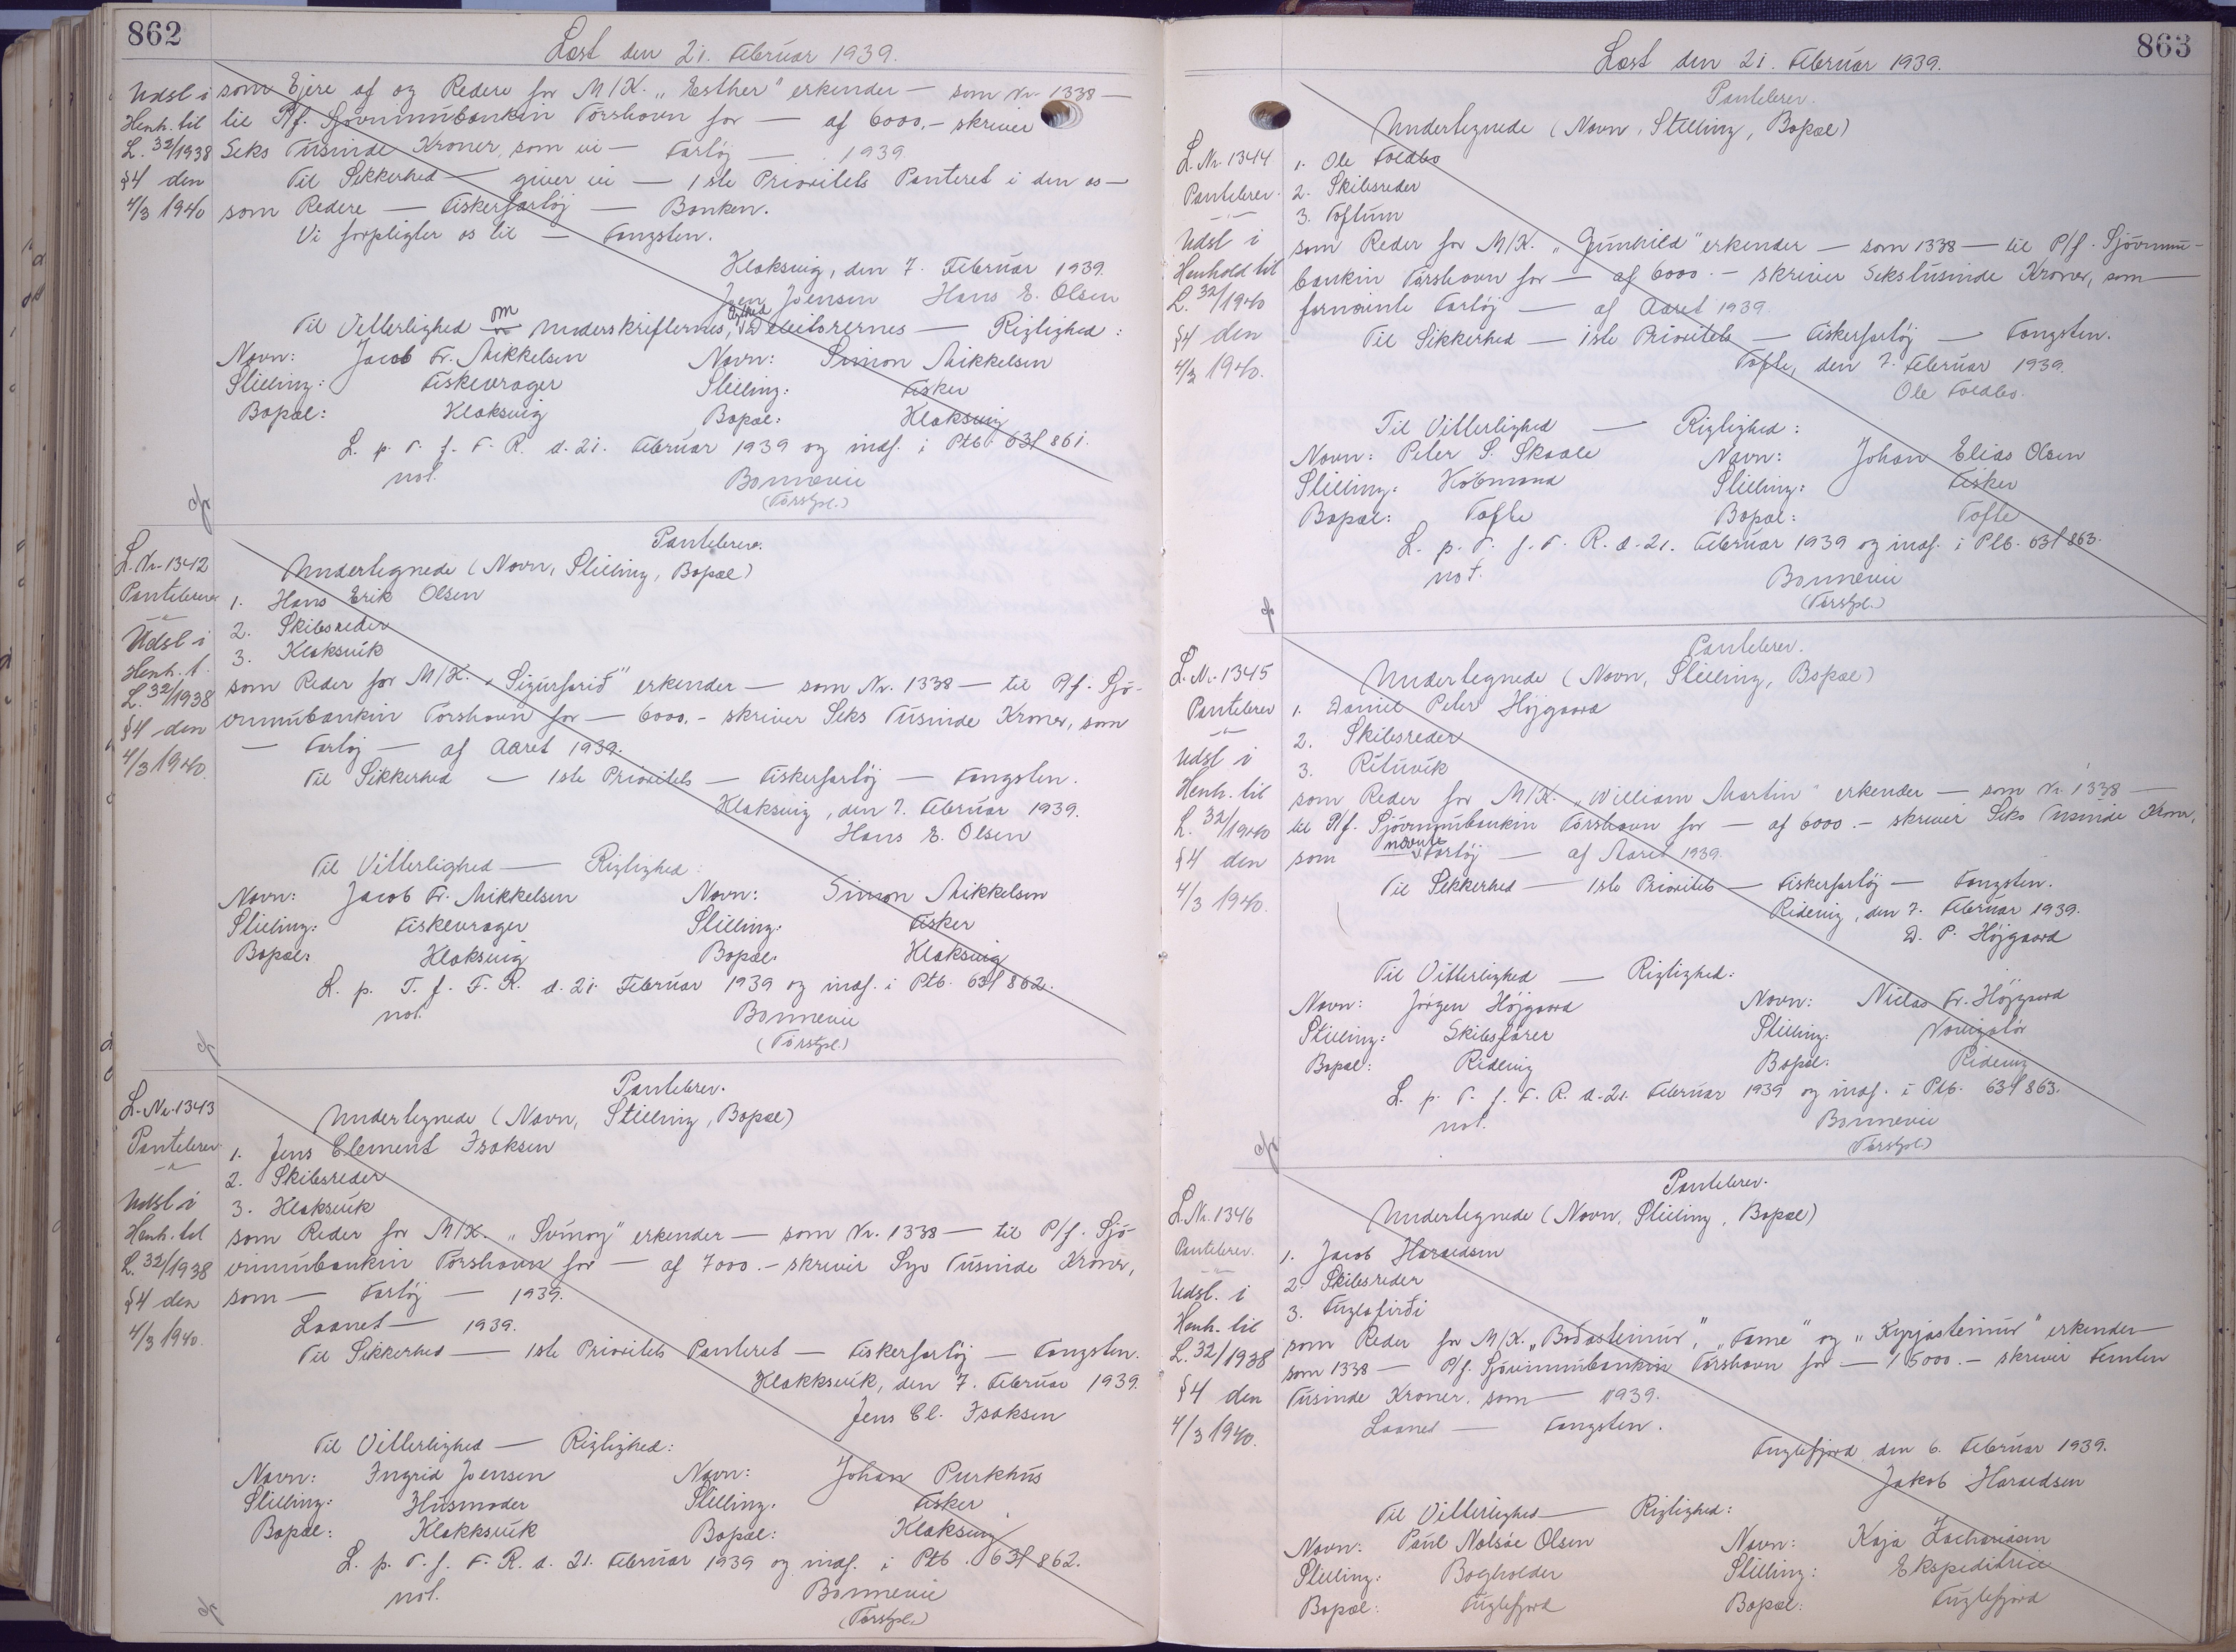 862
Læst den 21. Februar 1939.
Udsl i
Henh. til
L. 32/1938
§4 den
4/3 1940
som Ejere af og Redere for M/K. „Esther" erkender — som Nr. 1338 —
til P/f. Sjóvinnubankin Tórshavn for — af 6000,- skriver
Seks Tusinde Kroner, som vi — Fartøj — 1939
Til Sikkerhed — giver vi — 1ste Prioritets Panteret i den os —
som Redere — Fiskerfartøj — Banken.
Vi forpligter os til — Fangsten.
Klaksvig, den 7. Februar 1939.
Joen Joensen Hans E. Olsen
Til Vitterlighed om Underskrifternes Ægthed, — Rigtighed:
Navn: Jacob Fr. Mikkelsen Navn: Simon Mikkelsen
Stilling: Fiskevrager Stilling: Fisker
Bopæl: Klaksvig Bopæl: Klaksvig
L. p. T. f. F. R. d. 21. Februar 1939 og indf. i Ptb. 63f 861.
not. Bonnevie
(Torstpl.)
L. Nr. 1342
Pantebrev
Udsl i
Henh. t.
L. 32/1938
§4 den
4/3 1940.
Pantebrev.
Undertegnede (Navn, Stilling, Bopæl)
1. Hans Erik Olsen
2. Skibsreder
3. Klaksvik
som Reder for M/K. „Sigurfarið" erkender — som Nr. 1338 — til P/f. Sjó-
vinnubankin Tórshavn for — 6000,- skriver Seks Tusinde Kroner, som
— Fartøj — af Aaret 1939.
Til Sikkerhed — 1ste Prioritets — Fiskerfartøj — Fangsten.
Klaksvig, den 7. Februar 1939.
Hans E. Olsen
Til Vitterlighed — Rigtighed
Navn: Jacob Fr. Mikkelsen Navn: Simon Mikkelsen
Stilling: Fiskevrager Stilling: Fisker
Bopæl: Klaksvig Bopæl: Klaksvig
L. p. T. f. F. R. d. 21. Februar 1939 og indf. i Ptb. 63f 862.
not. Bonnevie
(Torstpl.)
L. Nr. 1343
Pantebrev
Udsl i
Henh. til
L. 32/1938
§4 den
4/3 1940.
Pantebrev.
Undertegnede (Navn, Stilling, Bopæl)
1. Jens Clement Isaksen
2. Skibsreder
3. Klaksvik
som Reder for M/K. „Svinoy" erkender — som Nr. 1338 — til P/f. Sjó-
vinnubankin Tórshavn for — af 7000.- skriver Syv Tusinde Kroner,
som — Fartøj — 1939.
Laanet — 1939.
Til Sikkerhed — 1ste Prioritets Panteret — Fiskerfartøj — Fangsten.
Klakksvik, den 7. Februar 1939.
Jens Cl. Isaksen
Til Vitterlighed — Rigtighed:
Navn: Ingrid Joensen Navn: Johan Purkhús
Stilling: Húsmoder Stilling. Fisker
Bopæl: Klakksvik Bopæl: Klaksvig
L. p. T. f. F. R. d. 21. Februar 1939 og indf. i Ptb. 63f 862.
not. Bonnevie
(Torstpl.)
863
Læst den 21. Februar 1939.
L. Nr. 1344
Pantebrev.
Udsl i
Henhold til
L. 32/1940
§4 den
4/3 1940.
Pantebrev.
Undertegnede (Navn, Stilling, Bopæl)
1. Ole Foldbo
2. Skibsreder
3. Toftum
som Reder for M/K. „Gunhild" erkender — som 1338 — til P/f. Sjóvinnu-
bankin Tórshavn for — af 6000.- skriver Sekstusinde Kroner, som —
fornævnte Fartøj — af Aaret 1939.
Til Sikkerhed — 1ste Prioritets — Fiskerfartøj — Fangsten.
Tofte, den 7. Februar 1939.
Ole Foldbo.
Til Vitterlighed — Rigtighed:
Navn: Peter S. Skaale Navn: Johan Elias Olsen
Stilling: Købmand Stilling: Fisker
Bopæl: Tofte Bopæl: Tofte
L. p. T. f. F. R. d. 21. Februar 1939 og indf. i Ptb. 63f 863.
not. Bonnevie
(Torstpl.)
L. Nr. 1345
Pantebrev
Udsl i
Henh. til
L. 32/1940
§4 den
4/3 1940.
Pantebrev.
Undertegnede (Navn, Stilling, Bopæl)
1. Daniel Peter Højgaard
2. Skibsreder
3. Rituvik
som Reder for M/K. „William Martin" erkender — som Nr. 1338 —
til P/f. Sjóvinnubankin Tórshavn for — af 6000.- skriver Seks Tusinde Kroner,
som nævnte Fartøj — af Aaret 1939.
Til Sikkerhed — 1ste Prioritets — Fiskerfartøj — Fangsten.
Ridevig, den 7. Februar 1939.
D. P. Højgaard
Til Vitterlighed — Rigtighed:
Navn: Jørgen Højgaard Navn: Niclas Fr. Højgaard
Stilling: Skibsfører Stilling: Navigatør
Bopæl: Ridevig Bopæl: Ridevig
L. p. T. f. F. R. d. 21. Februar 1939 og indf. i Ptb. 63f 863.
not. Bonnevie
(Torstpl.)
L. Nr. 1346
Pantebrev.
Udsl. i
Henh. til
L. 32/1938
§4 den
4/3 1940.
Pantebrev.
Undertegnede (Navn, Stilling, Bopæl)
1. Jacob Haraldsen
2. Skibsreder
3. Fuglafirði
som Reder for M/K. „Boðasteinur", „Fame" og „Kyrjasteinur" erkender —
som 1338 — P/f. Sjóvinnubankin Tórshavn for — 15000.- skriver Femten
Tusinde Kroner. som — 1939.
Laanet — Fangsten.
Fuglefjord den 6. Februar 1939.
Jakob Haraldsen
Til Vitterlighed — Rigtighed:
Navn: Paul Nolsøe Olsen Navn: Kaja Zachariasen
Stilling: Bogholder Stilling: Ekspeditrice
Bopæl: Fuglefjord Bopæl: Fuglefjord